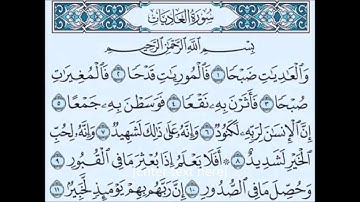 سُورَةُ العَادِيَاتِ
بِسْمِ اللَّهِ الرَّحْمَٰنِ الرَّحِيمِ
وَالْعَٰدِيَٰتِ ضَبْحًا ١ فَالْمُورِيَٰتِ قَدْحًا ٢ فَالْمُغِيرَٰتِ
صُبْحًا ٣ فَأَثَرْنَ بِهِۦ نَقْعًا ٤ فَوَسَطْنَ بِهِۦ جَمْعًا ٥
إِنَّ الْإِنسَٰنَ لِرَبِّهِۦ لَكَنُودٌ ٦ وَإِنَّهُۥ عَلَىٰ ذَٰلِكَ لَشَهِيدٌ ٧ وَإِنَّهُۥ لِحُبِّ
الْخَيْرِ لَشَدِيدٌ ٨ أَفَلَا يَعْلَمُ إِذَا بُعْثِرَ مَا فِي الْقُبُورِ ٩
[Enter text here]
وَحُصِّلَ مَا فِي الصُّدُورِ ١٠ إِنَّ رَبَّهُم بِهِمْ يَوْمَئِذٍ لَّخَبِيرٌ ١١